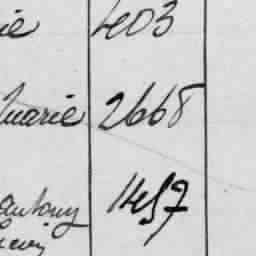 ie 403
marie 2668
antony 1457